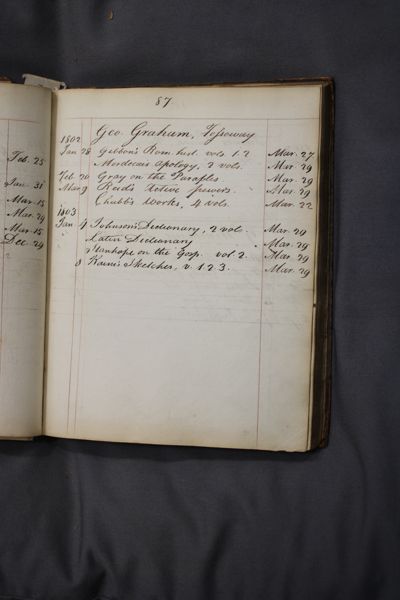 Feb. 25
Jan. 31
Mar. 15
Mar. 29
Mar. 15
Dec. 29
87
Geo. Graham,
1802
Jan 28 Gibbon's Rom. hist. vols. 1. 2 Mar. 27
Apology, 2 vols. Mar. 29
Feb. 20 Gray on the Parables Mar. 29
Mar. 9 Reid's Active powers. Mar. 29
Chubb's Works, 4 vols. Mar. 22
1803
Jan 4 Johnson's Dictionary, 2 vol. Mar. 29
Latin Dictionary Mar. 29
Stanhope on the Gosp. vol 2. Mar. 29
8 Kaim's Sketches, v. 1. 2 3. Mar. 29